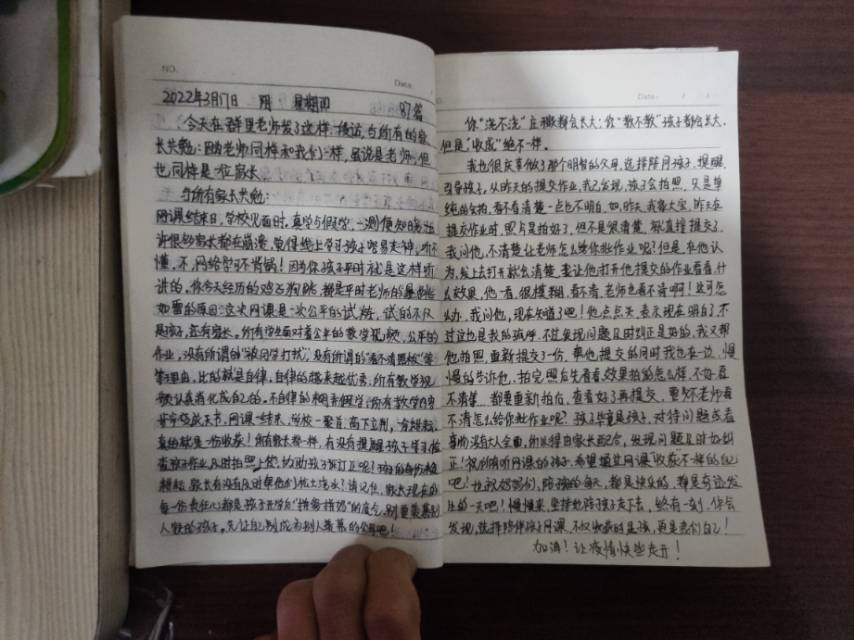 NO.
Date.
2022年3月17日 阴 星期四 87篇
今天在群里老师发了这样一段话,与所有的家
长共勉:因为老师同样和我们一样,虽说是老师,但
也同样是一位家长
与所有家长共勉:
网课结束日,学校见面时,真学与假学,一测便知晓
许很多家长都在崩溃,觉得线上学习孩子容易走神,听不
懂,不,网络学习不背锅!因为你孩子平时就是这样听
讲的,你今天经历的鸡飞狗跳,都是平时老师的
如普的原因:这次网课是一次公平的试炼,试的不仅
是孩子,还有家长。所有学生面对着公平的教学视频,公平的
作业,没有所谓的"被同学打扰",没有所谓的"看不清黑板"等
等理由,比的就是自律,自律的越来越优秀,所有教学视
频认真消化成自己的,不自律的
网课一结束,学校一聚首,高下立判,
真的就是一份收获!所有家长都一样,有没有提醒孩子坐好,检
查孩子作业,及时拍照上传,协助孩子订正呢?孩子的身份是
颗粒,家长有没有及时帮他们松土浇水?请记住,家长现在的
每一份责任心都是孩子开学后"拼爹拼妈"的底气,别重羡慕别
人家的孩子,先让自己别成为别人羡慕的父母吧!
Date.
你"浇不浇"庄稼都会长大;你"教不教"孩子都会长大,
但是"收成"绝不一样。
我也很庆幸做了那个明智的父母,选择陪同孩子,提醒,
引导孩子,从昨天的提交作业,我已发现,孩子会拍照,只是单
纯的会拍,看不看清楚一点也不明白,如,昨天,我家大宝,昨天在
提交作业时,照片是拍好了,但不是很清楚,就直接提交了,
我问他,不清楚让老师怎么给你批作业呢?但是,在他认
为,发上去打开就会清楚,要让他打开他提交的作业看看,什
么效果,他一看,很模糊,看不清,老师也看不清啊!这可怎
么办,我问他,现在知道了吧!他点点头,表示现在明白了,不
过这也是我的疏忽,不过发现问题及时纠正是好的,我又帮
他拍照,重新提交了一份,帮他提交的同时,我也在一边,慢
慢的告诉他,拍完照后先看看,效果拍的怎么样,不好,歪
不清楚,都要重新拍,查看好了再提交,要知老师看
不清怎么给你批作业呢?孩子毕竟是孩子,对待问题或看
事物没有大人全面,所以得由家长配合,发现问题及时加纠
正!祝所有听网课的孩子,希望通过网课"收获"不一样的自己
吧!也祝妈妈们,陪孩的每天,都是快乐的,都是奇迹发
生的一天吧!慢慢来,坚持就陪孩子走下去,终有一刻,你会
发现,选择陪伴孩子网课,不仅收获的是孩,更是我们自己!
加油!让疫情快些走开!